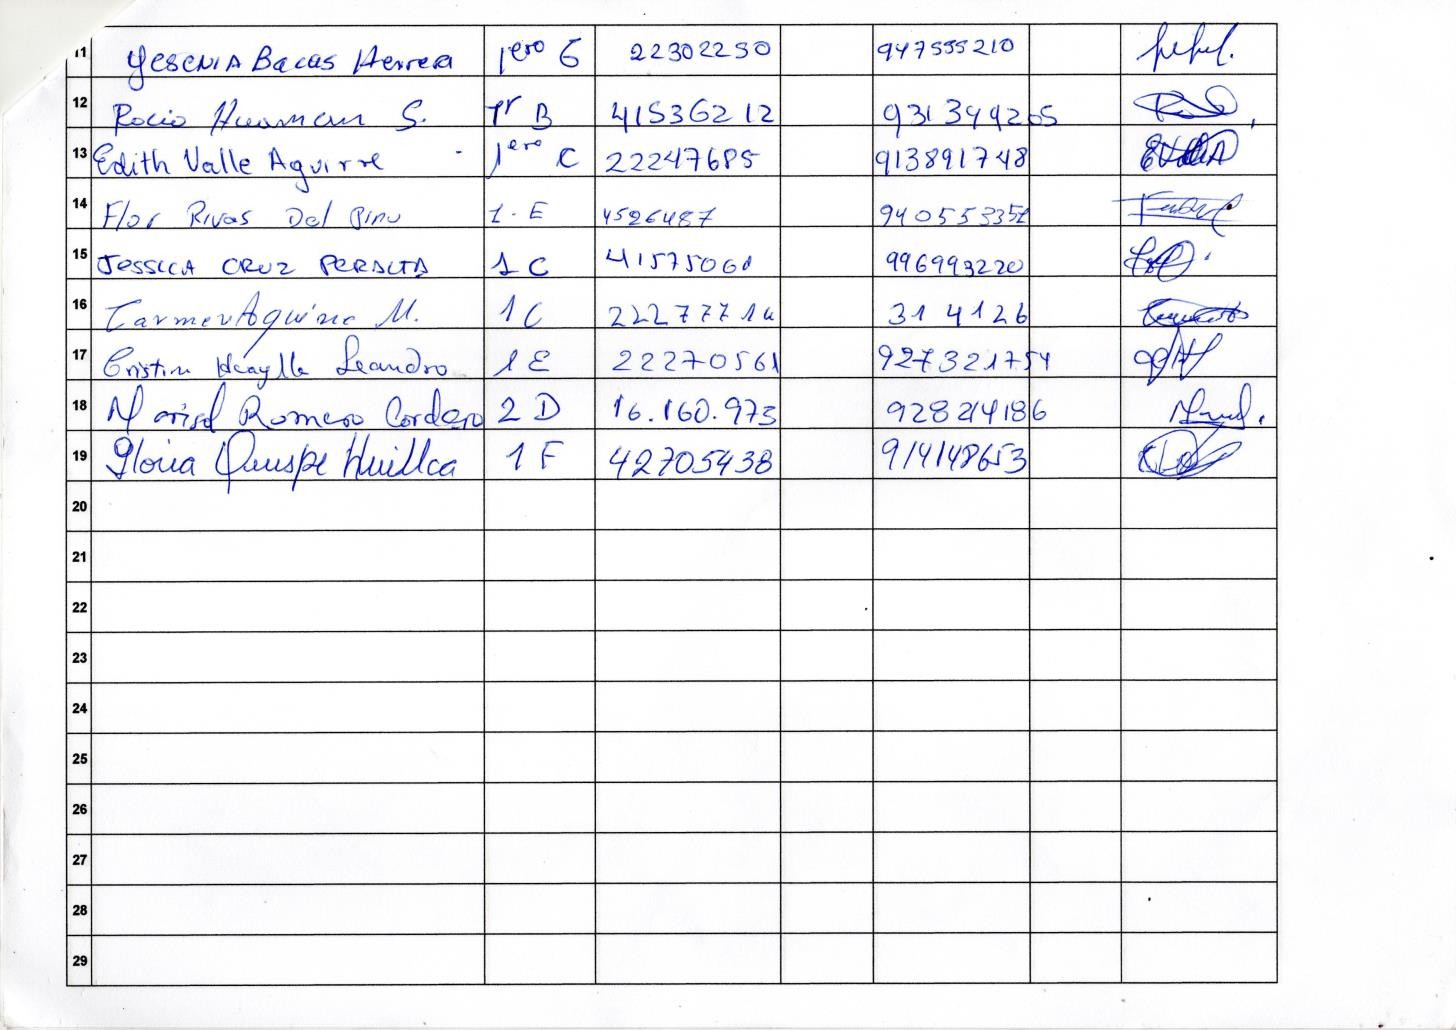 11 Yesenia Bacas Herrera 1ero G 22302250 947555210
12 Rocio Huaman S. 1r B 41536212 931344205
13 Edith Valle Aguirre - 1ero C 22247685 913891748
14 Flor Rivas Del Pino 1. E 4526487 940553352
15 JESSICA CRUZ PERALTA 1 C 41575061 996993220
16 Carmen Aquino M. 1C 314126
17 Cristina Leandro 1E 22270561 927321754
18 Marisol Romero Cordero 2 D 16.160.973 928214186
19 Gloria Quispe Huillca 1 F 42705438 914148653
20
21
22
23
24
25
26
27
28
29